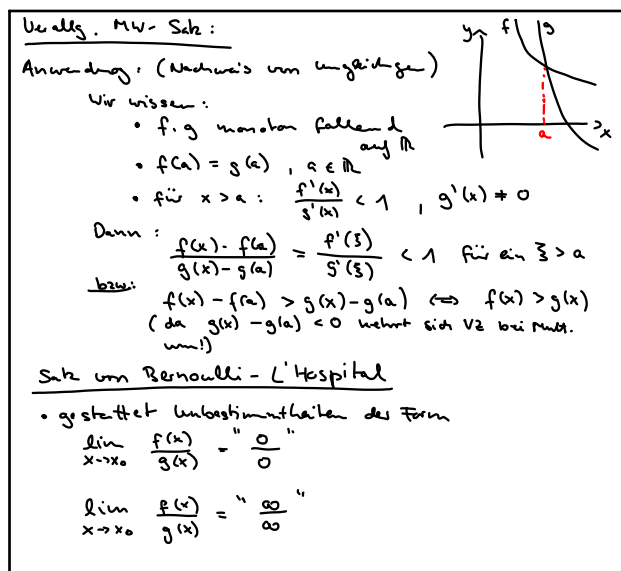 Verallg. MW-Satz:
Anwendung: (Nachweis von ungleichungen)
Wir wissen:
• f, g monoton fallend
auf ℝ
• f(a) = g(a) , a ∈ ℝ
• für x > a : f'(x)/g'(x) < 1 , g'(x) ≠ 0
Dann:
(f(x) - f(a))/(g(x) - g(a)) = f'(ξ)/g'(ξ) < 1 für ein ξ > a
bzw:
f(x) - f(a) > g(x) - g(a) ⟺ f(x) > g(x)
(da g(x) - g(a) < 0 kehrt sich VZ bei Mult.
um!)
y
f
g
a
x
Satz von Bernoulli - L'Hospital
• gestattet Unbestimmtheiten der Form
lim x→x₀ f(x)/g(x) = "0/0"
lim x→x₀ f(x)/g(x) = "∞/∞"